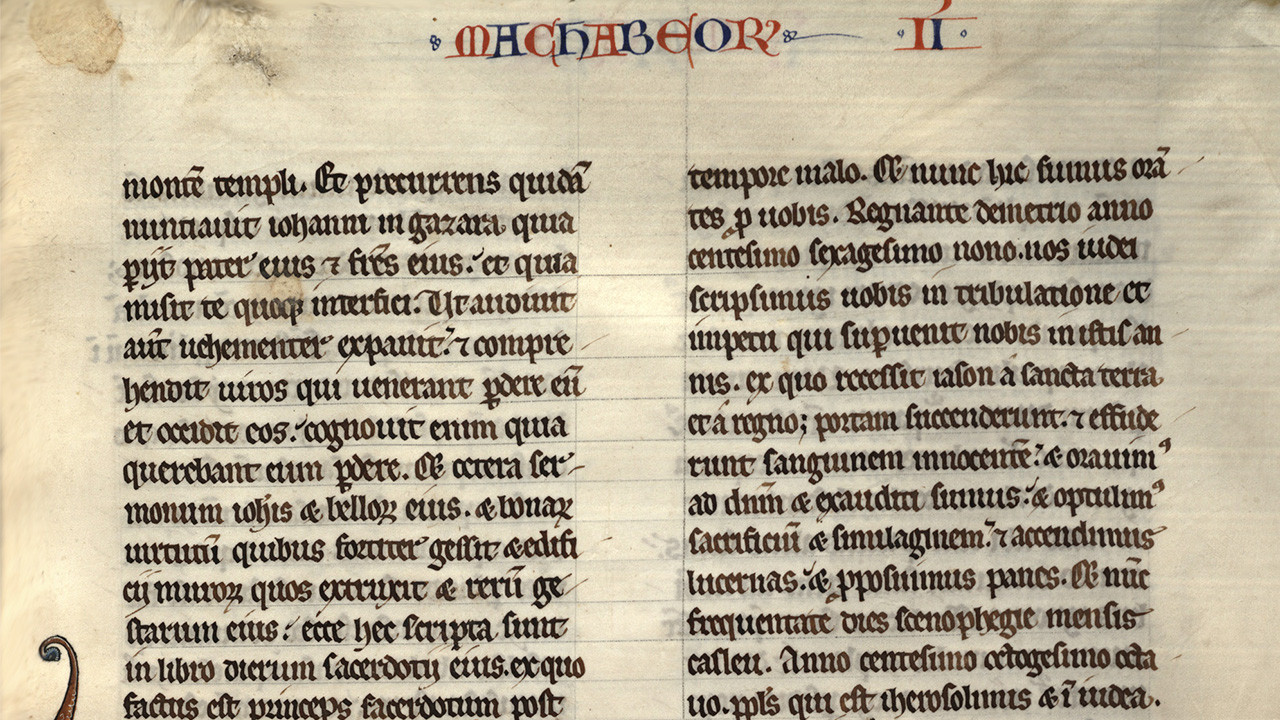 MACHABEOR̄ II
montē templi. Et precurrens quidā
nuntiauit iohanni in gazara quia
p̱ijt pater eius ⁊ fr̄es eius. et quia
misit te quoqꝫ interfici. Ut audiuit
aūt uehementer expauit. ⁊ compre
hendit uiros qui uenerant ꝑdere eū
et occidit eos. cognouit enim quia
querebant eum ꝑdere. Et cetera ser
monum ioh̄is & belloꝝ eius. & bonaꝝ
uirtutū quibus fortiter gessit & edifi
cij muroꝝ quos extruxit & rerū ge
starum eius. ecce hec scripta sunt
in libro dierum sacerdotij eius. ex quo
factus est princeps sacerdotum post
tempore malo. Et nunc hic sumus orā
tes ꝓ uobis. Regnante demetrio anno
centesimo sexagesimo nono. nos iudei
scripsimus uobis in tribulatione et
impetu qui suꝑuenit nobis in istis an
nis. ex quo recessit iason a sancta terra
et a regno; portam succenderunt. ⁊ effude
runt sanguinem innocentē. & orauimꝰ
ad dn̄m & exauditi sumus. & optulimꝰ
sacrificiū & similaginem. ⁊ accendimus
lucernas. & ꝓposuimus panes. Et nūc
frequentate dies scenophegie mensis
casleu. Anno centesimo octogesimo octa
uo. ppl̄s qui est iherosolimis & ī iudea.